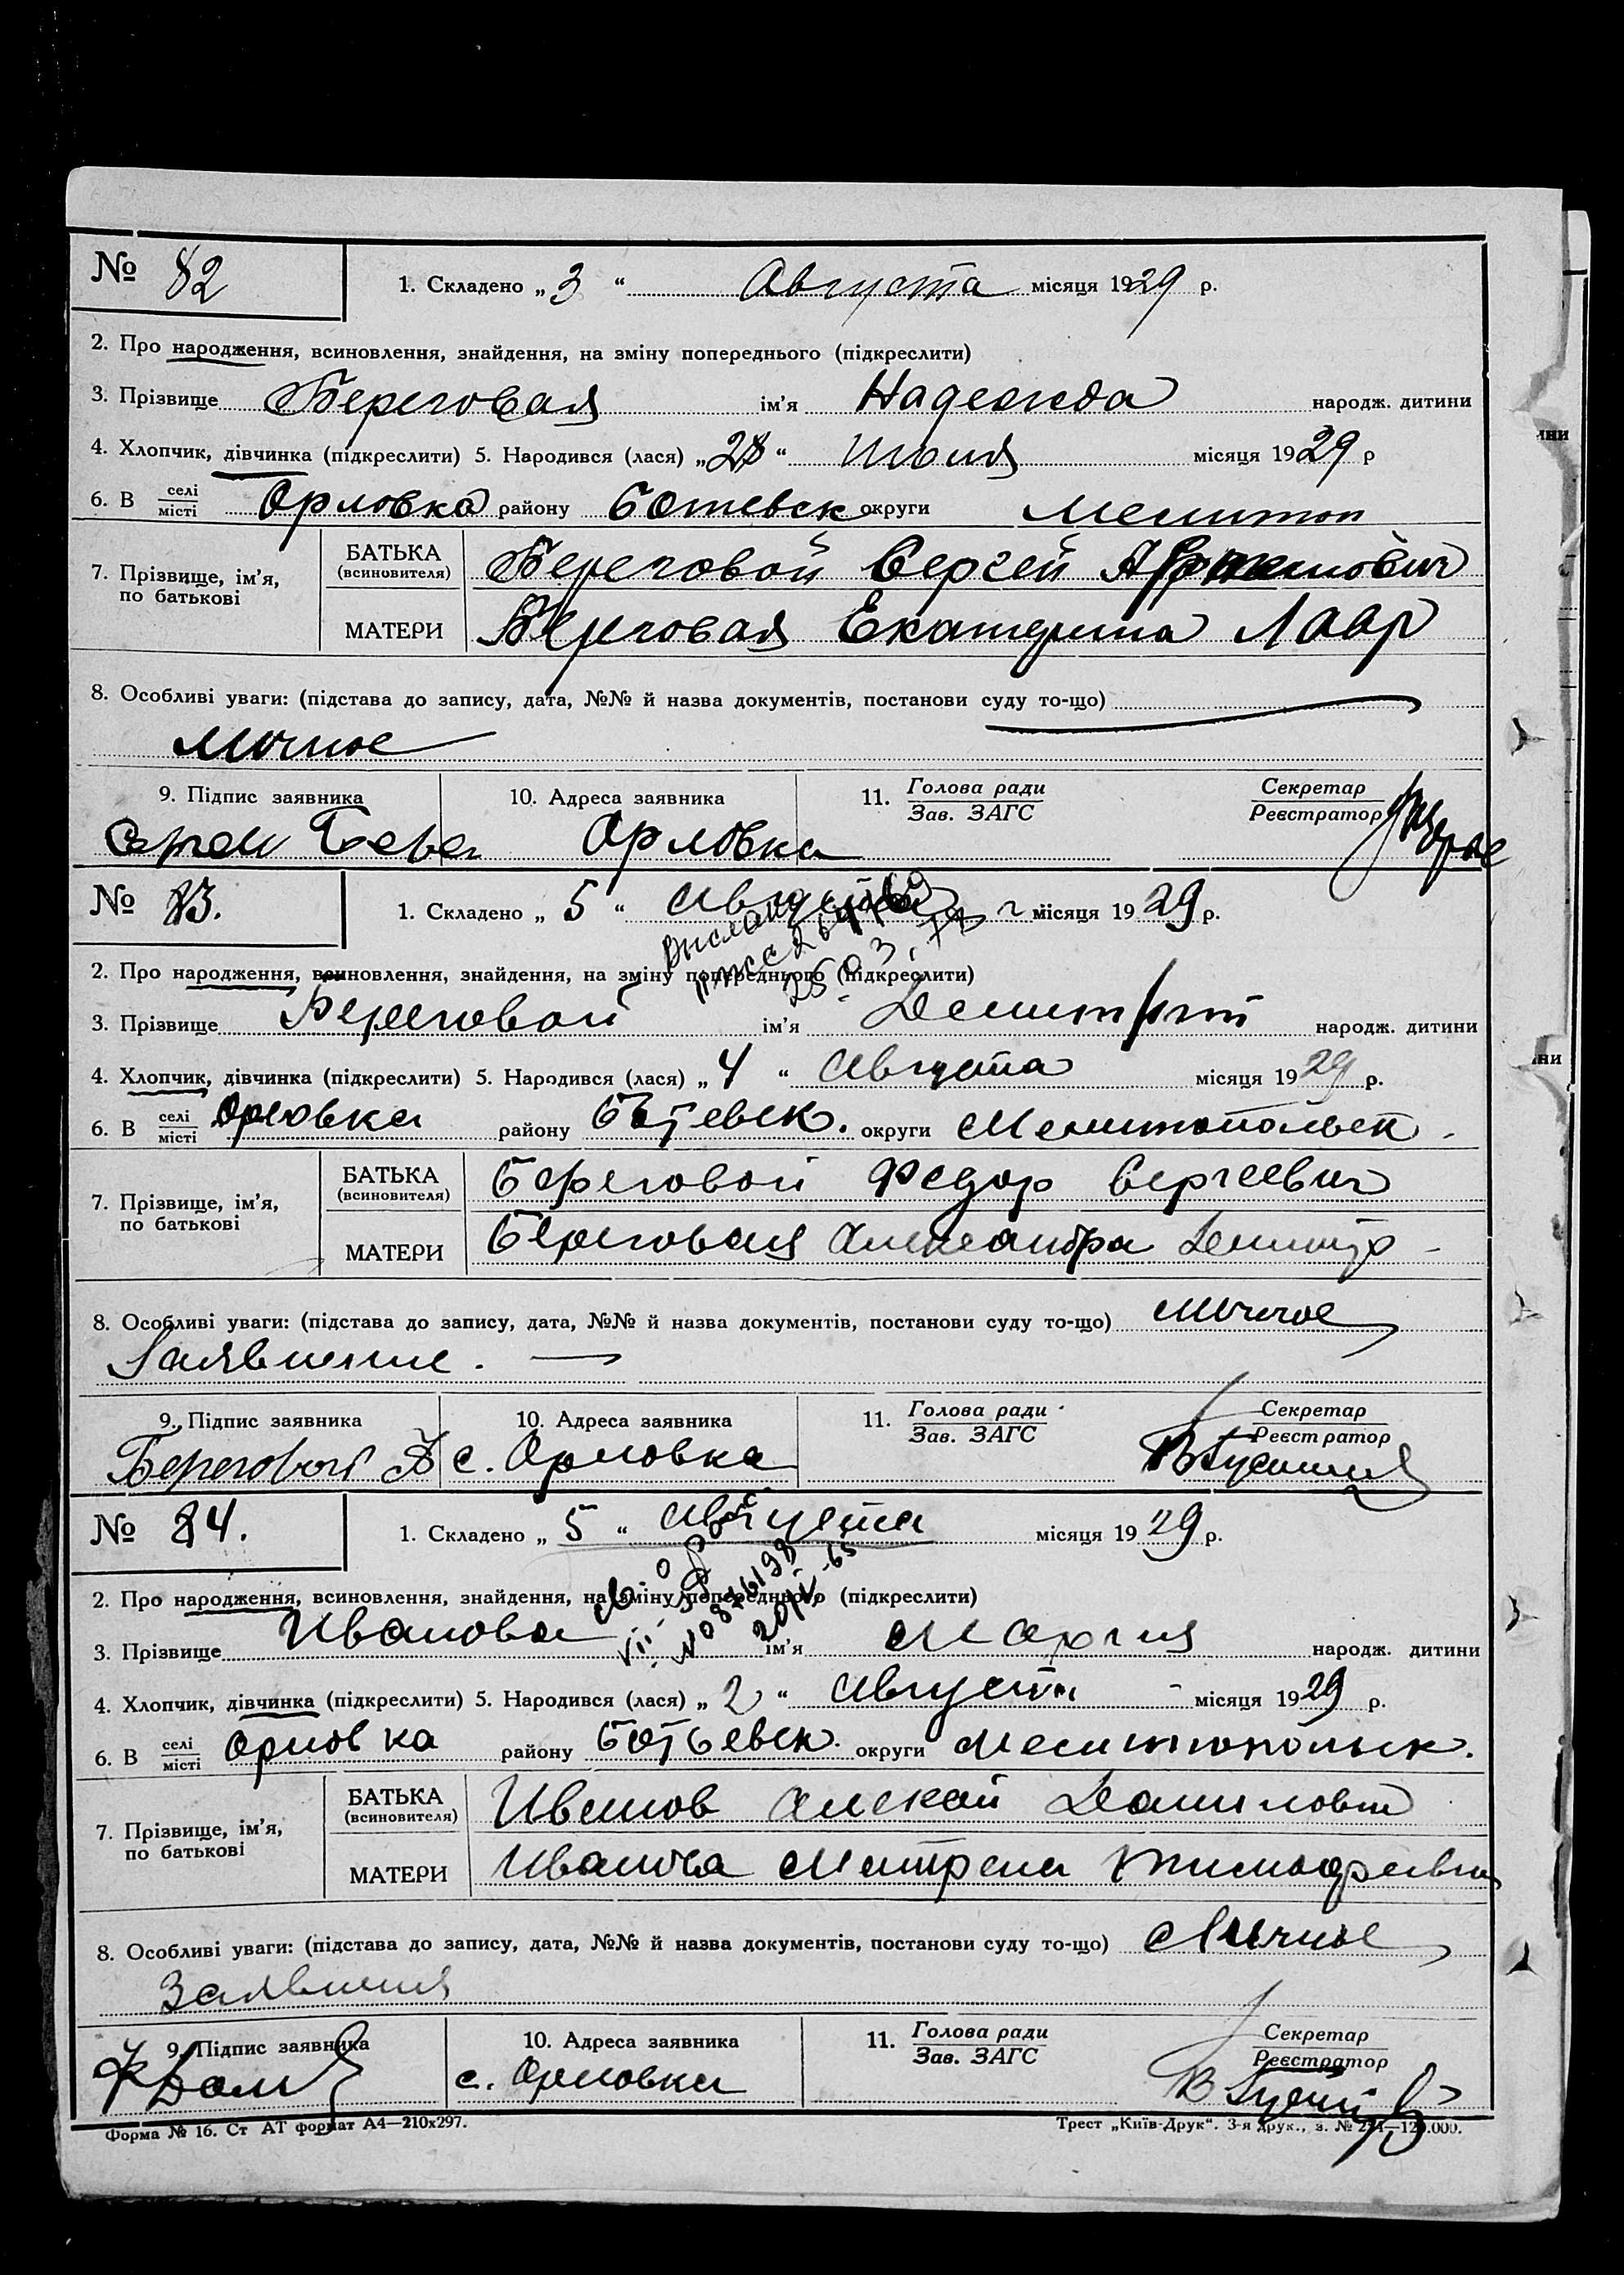 № 82 1. Складено „ 3 “ Августа місяця 1929 р.
2. Про народження, всиновлення, знайдення, на зміну попереднього (підкреслити)
3. Прізвище Береговая ім’я Надежда народж. дитини
4. Хлопчик, дівчинка (підкреслити) 5. Народився (лася) „ “ июля місяця 1929 р
6. В селі/місті Орловка району Ботевск округи Мелитоп
7. Прізвище, ім’я, по батькові БАТЬКА (всиновителя) Береговой Сергей
МАТЕРИ Береговая Екатерина Лавр
8. Особливі уваги: (підстава до запису, дата, №№ й назва документів, постанови суду то-що)
Личное
9. Підпис заявника 10. Адреса заявника 11. Голова ради/Зав. ЗАГС Секретар/Реєстратор
Орловка
№ 83. 1. Складено „ 5 “ Августа місяця 1929 р.
2. Про народження, всиновлення, знайдення, на зміну попереднього (підкреслити)
3. Прізвище Береговой ім’я Демитрий народж. дитини
4. Хлопчик, дівчинка (підкреслити) 5. Народився (лася) „ 4 “ Августа місяця 1929 р.
6. В селі/місті Орловка району Ботевск. округи Мелитопольск.
7. Прізвище, ім’я, по батькові БАТЬКА (всиновителя) Береговой Федор Сергеевич
МАТЕРИ Береговая Александра
8. Особливі уваги: (підстава до запису, дата, №№ й назва документів, постанови суду то-що) Личное
Заявление.
9. Підпис заявника 10. Адреса заявника 11. Голова ради/Зав. ЗАГС Секретар/Реєстратор
Береговой с. Орловка
№ 84. 1. Складено „ 5 “ Августа місяця 1929 р.
2. Про народження, всиновлення, знайдення, на зміну попереднього (підкреслити)
3. Прізвище Иванова ім’я Мария народж. дитини
4. Хлопчик, дівчинка (підкреслити) 5. Народився (лася) „ 2 “ Августа місяця 1929 р.
6. В селі/місті Орловка району Ботьевск. округи Мелитопольск.
7. Прізвище, ім’я, по батькові БАТЬКА (всиновителя) Иванов Алексей Данилович
МАТЕРИ Иванова Матрена
8. Особливі уваги: (підстава до запису, дата, №№ й назва документів, постанови суду то-що) Личное
Заявления
9. Підпис заявника 10. Адреса заявника 11. Голова ради/Зав. ЗАГС Секретар/Реєстратор
с. Орловка
Форма № 16. Ст АТ формат А4—210х297. Трест „Київ-Друк“. 3-я друк., з. №